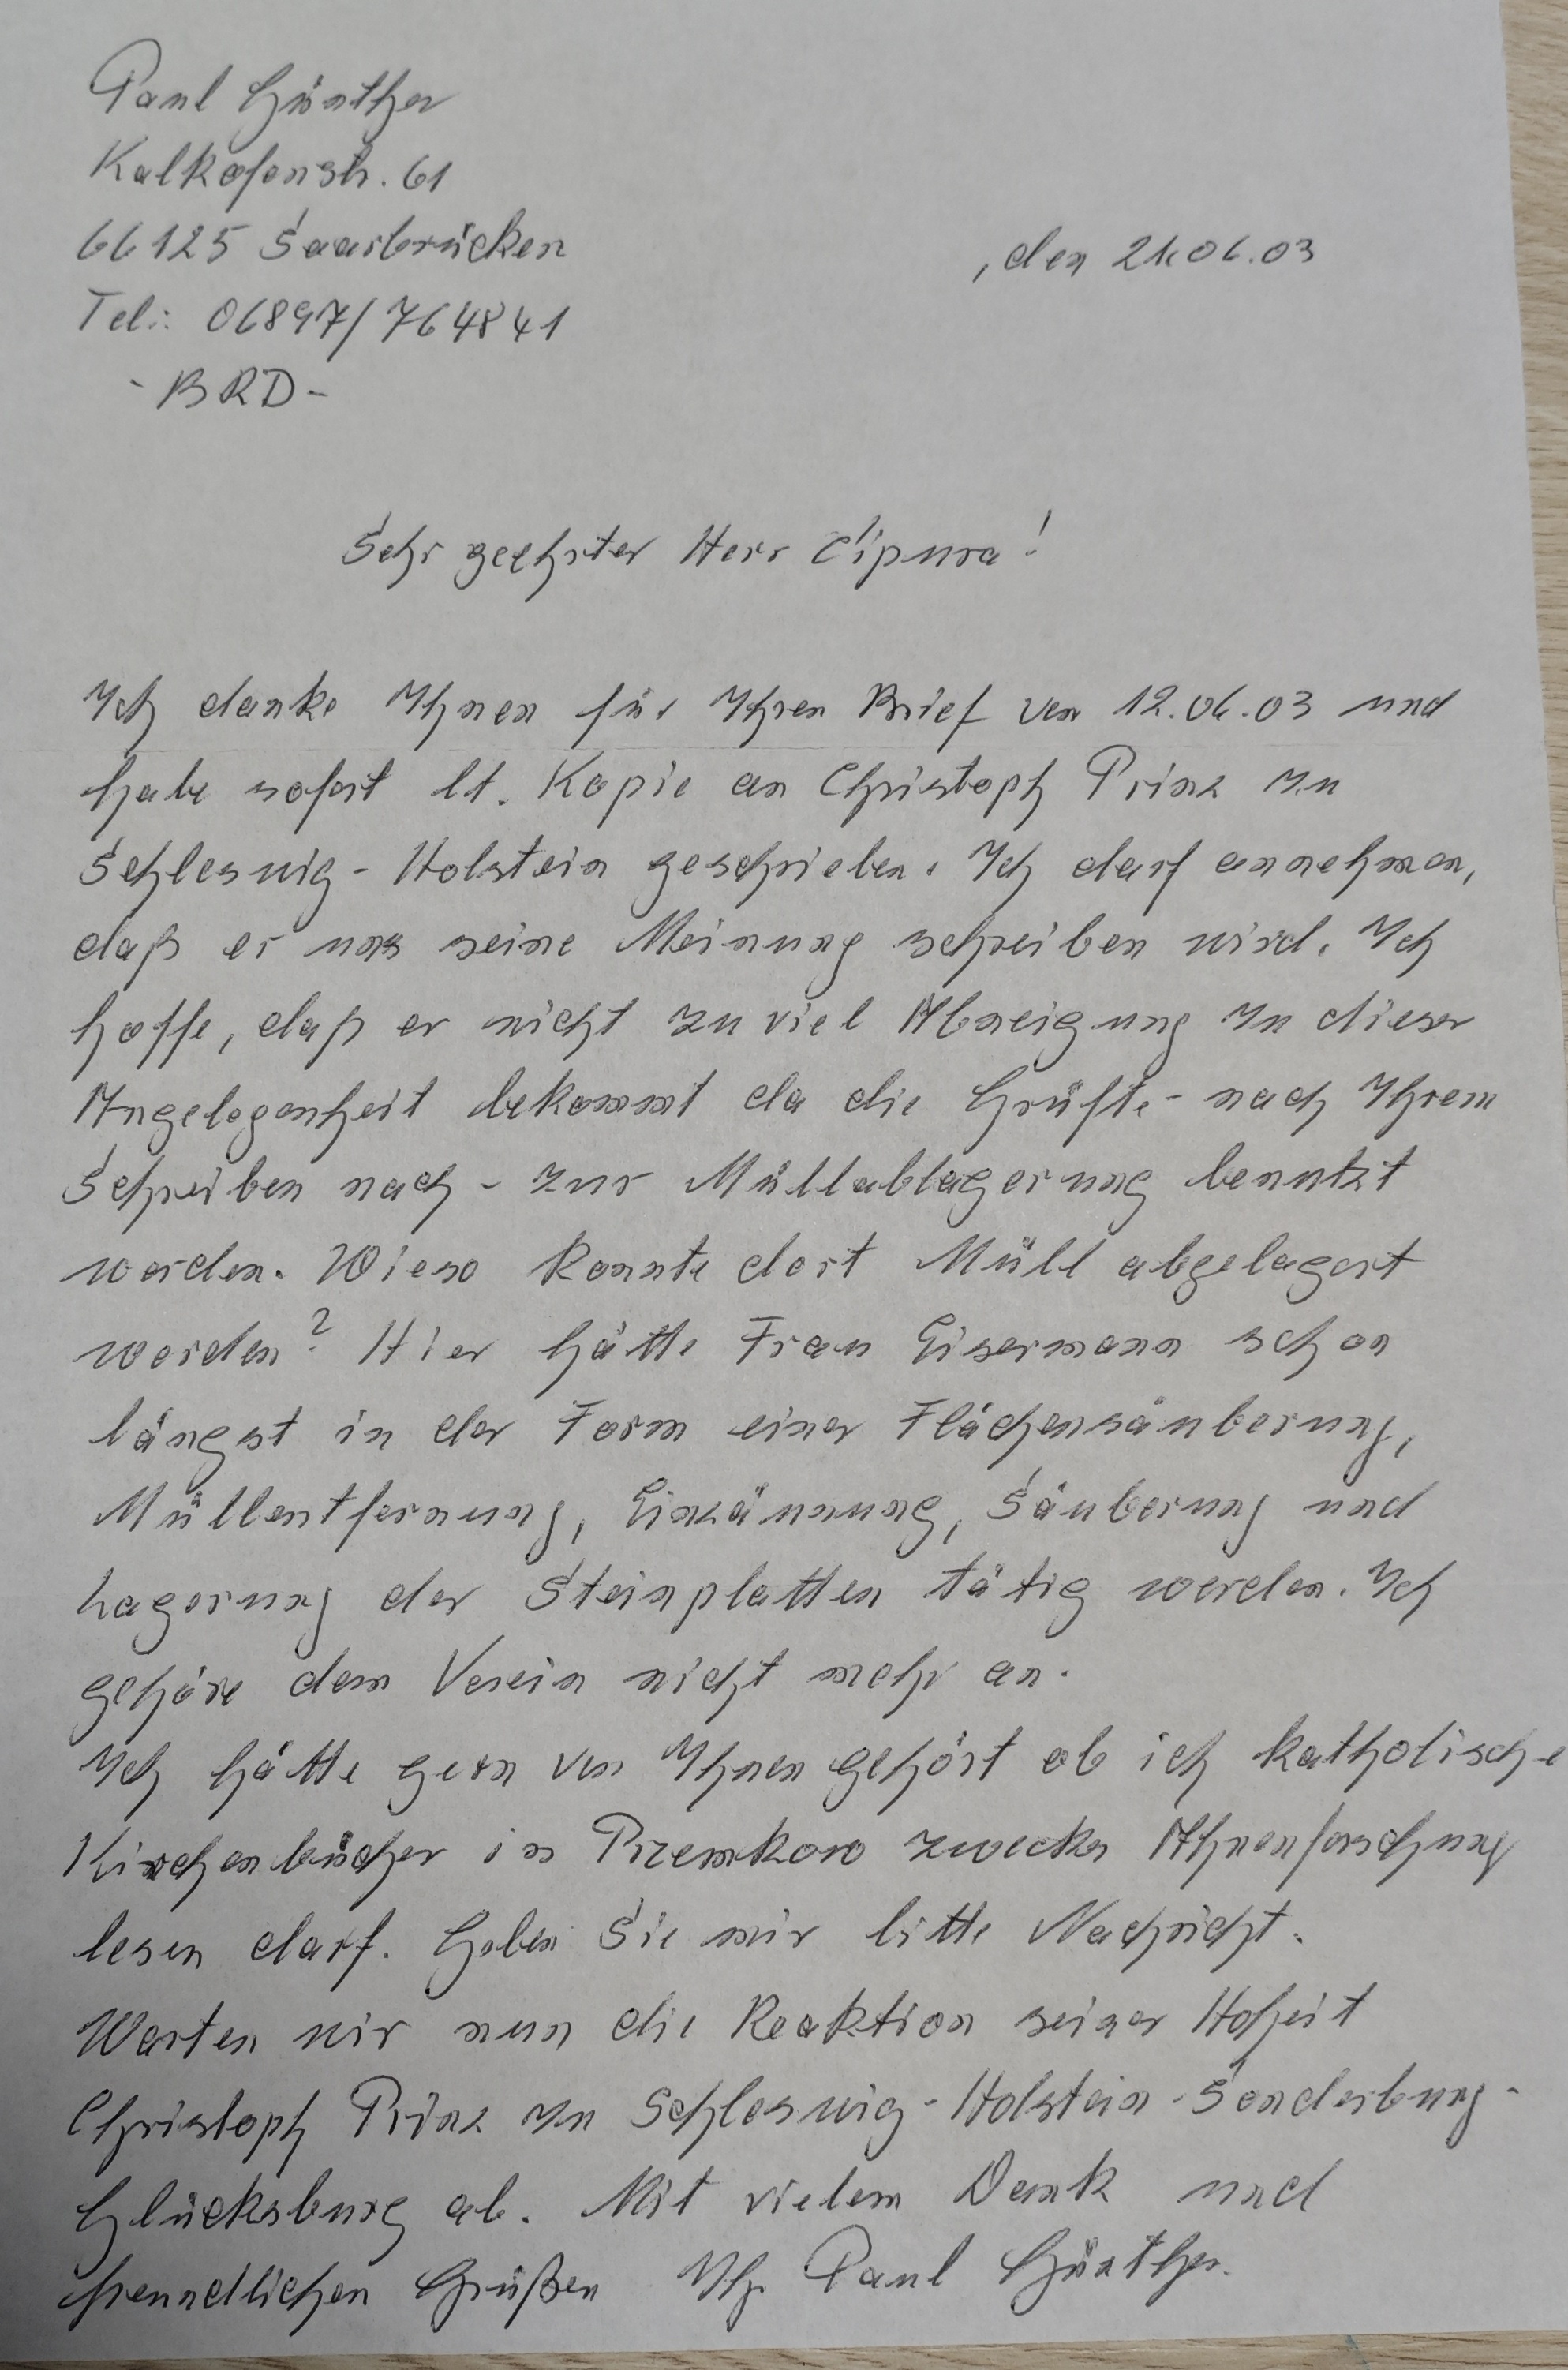 Paul Günther
Kalkofenstr. 61
66125 Saarbrücken
, den 21.06.03
Tel.: 06897/764841
- BRD -
Sehr geehrter Herr Cipura!
Ich danke Ihnen für Ihren Brief von 12.06.03 und
habe sofort lt. Kopie an Christoph Prinz zu
Schleswig-Holstein geschrieben. Ich darf annehmen,
daß er uns seine Meinung schreiben wird. Ich
hoffe, daß er nicht zu viel Abneigung zu dieser
Angelegenheit bekommt da die Grüfte - nach Ihrem
Schreiben nach - zur Müllablagerung benutzt
werden. Wieso konnte dort Müll abgelagert
werden? Hier hätte Frau Eisermann schon
längst in der Form einer Flächensäuberung,
Müllentfernung, Einzäunung, Säuberung und
Lagerung der Steinplatten tätig werden. Ich
gehöre dem Verein nicht mehr an.
Ich hätte gern von Ihnen gehört ob ich katholische
Kirchenbücher in Przemkow zwecks Ahnenforschung
lesen darf. Geben Sie mir bitte Nachricht.
Warten wir nun die Reaktion seiner Hoheit
Christoph Prinz zu Schleswig-Holstein-Sonderburg-
Glücksburg ab. Mit vielem Dank und
freundlichen Grüßen Ihr Paul Günther.